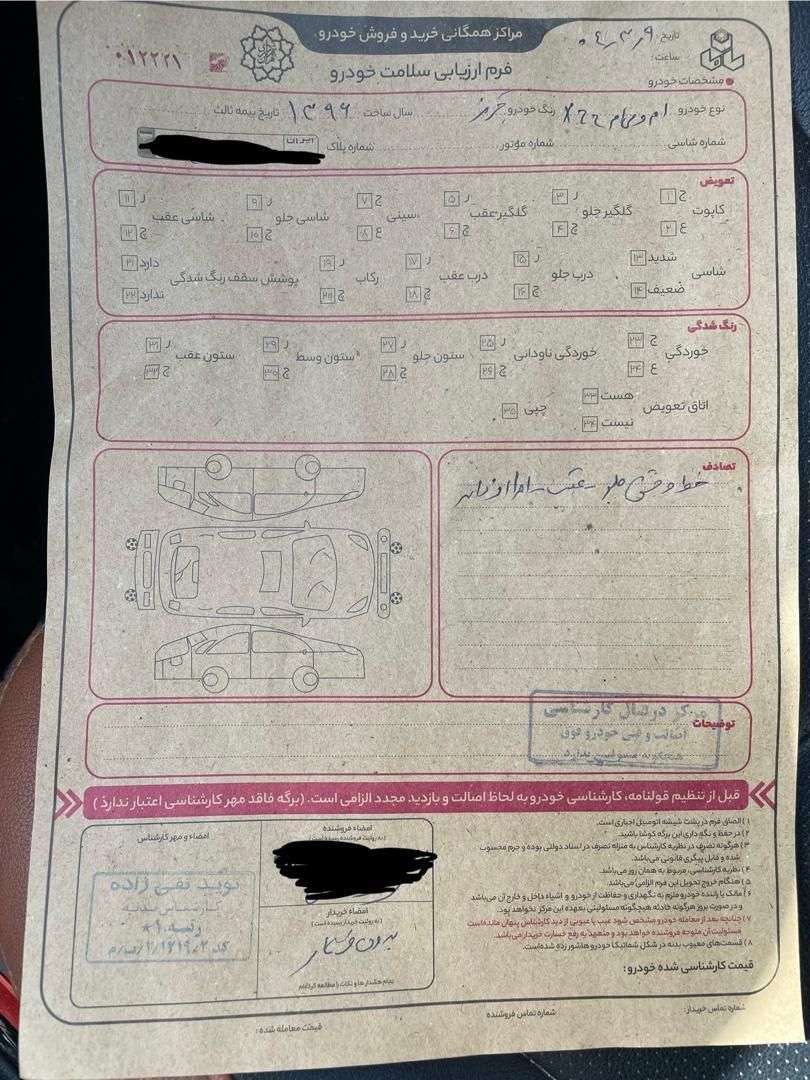 مراکز همگانی خرید و فروش خودرو
فرم ارزیابی سلامت خودرو
۰۱۲۲۲۱
تاریخ: ۰۴/۳/۹
ساعت:
مشخصات خودرو
نوع خودرو ام وی ام X22 رنگ خودرو قرمز سال ساخت ۱۳۹۶ تاریخ بیمه ثالث
شماره شاسی شماره موتور شماره پلاک
تعویض
کاپوت ج ۱ ع ۲ گلگیر جلو ر ۳ چ ۴ گلگیر عقب ر ۵ چ ۶ سینی ج ۷ ع ۸ شاسی جلو ر ۹ چ ۱۰ شاسی عقب ر ۱۱ چ ۱۲
شاسی شدید ۱۳ ضعیف ۱۴ درب جلو ر ۱۵ چ ۱۶ درب عقب ر ۱۷ چ ۱۸ رکاب ر ۱۹ چ ۲۰ پوشش سقف رنگ شدگی دارد ۲۱ ندارد ۲۲
رنگ شدگی
خوردگی ج ۲۳ ع ۲۴ خوردگی ناودانی ر ۲۵ چ ۲۶ ستون جلو ر ۲۷ چ ۲۸ ستون وسط ر ۲۹ چ ۳۰ ستون عقب ر ۳۱ چ ۳۲
اتاق تعویض هست ۳۳ نیست ۳۴ چپی ۳۵
تصادف
خط و خش جلو - عقب -
توضیحات
مرکز دونبال کارشناسی
اصالت و فنی خودرو فوق
هیچگونه مسئولیتی ندارد
قبل از تنظیم قولنامه، کارشناسی خودرو به لحاظ اصالت و بازدید مجدد الزامی است. (برگه فاقد مهر کارشناسی اعتبار ندارد)
۱) الصاق فرم در پشت شیشه اتومبیل اجباری است.
۲) در حفظ و نگه داری این برگه کوشا باشید.
۳) هرگونه تصرف در نظریه کارشناس به منزله تصرف در اسناد دولتی بوده و جرم محسوب
شده و قابل پیگری قانونی می‌باشد.
۴) نظریه کارشناسی، مربوط به همان روز می‌باشد.
۵) هنگام خروج تحویل این فرم الزامی می‌باشد.
۶) مالک یا راننده خودرو ملزم به نگهداری و حفاظت از خودرو و اشیاء داخل و خارج آن می‌باشد
و در صورت بروز هرگونه حادثه هیچگونه مسئولیتی بعهده این مرکز نخواهد بود.
۷) چنانچه بعد از معامله خودرو مشخص شود عیب یا عیوبی از دید کارشناس پنهان مانده است
مسئولیت آن متوجه فروشنده خواهد بود و متعهد به رفع خسارت خریدار می‌باشد.
۸) قسمت‌های معیوب بدنه در شکل شماتیکا خودرو هاشور زده شده است.
قیمت کارشناسی شده خودرو:
امضاء فروشنده
(به رؤیت فروشنده رسیده است)
امضاء خریدار
(به رؤیت خریدار رسیده است)
بدون خریدار
تمام هشدار ها و نکات را مطالعه کرده‌ام
امضاء و مهر کارشناس
نوید تقی زاده
کارشناس بدنه
رتبه ۱★
شماره تماس خریدار:
شماره تماس فروشنده
قیمت معامله شده: